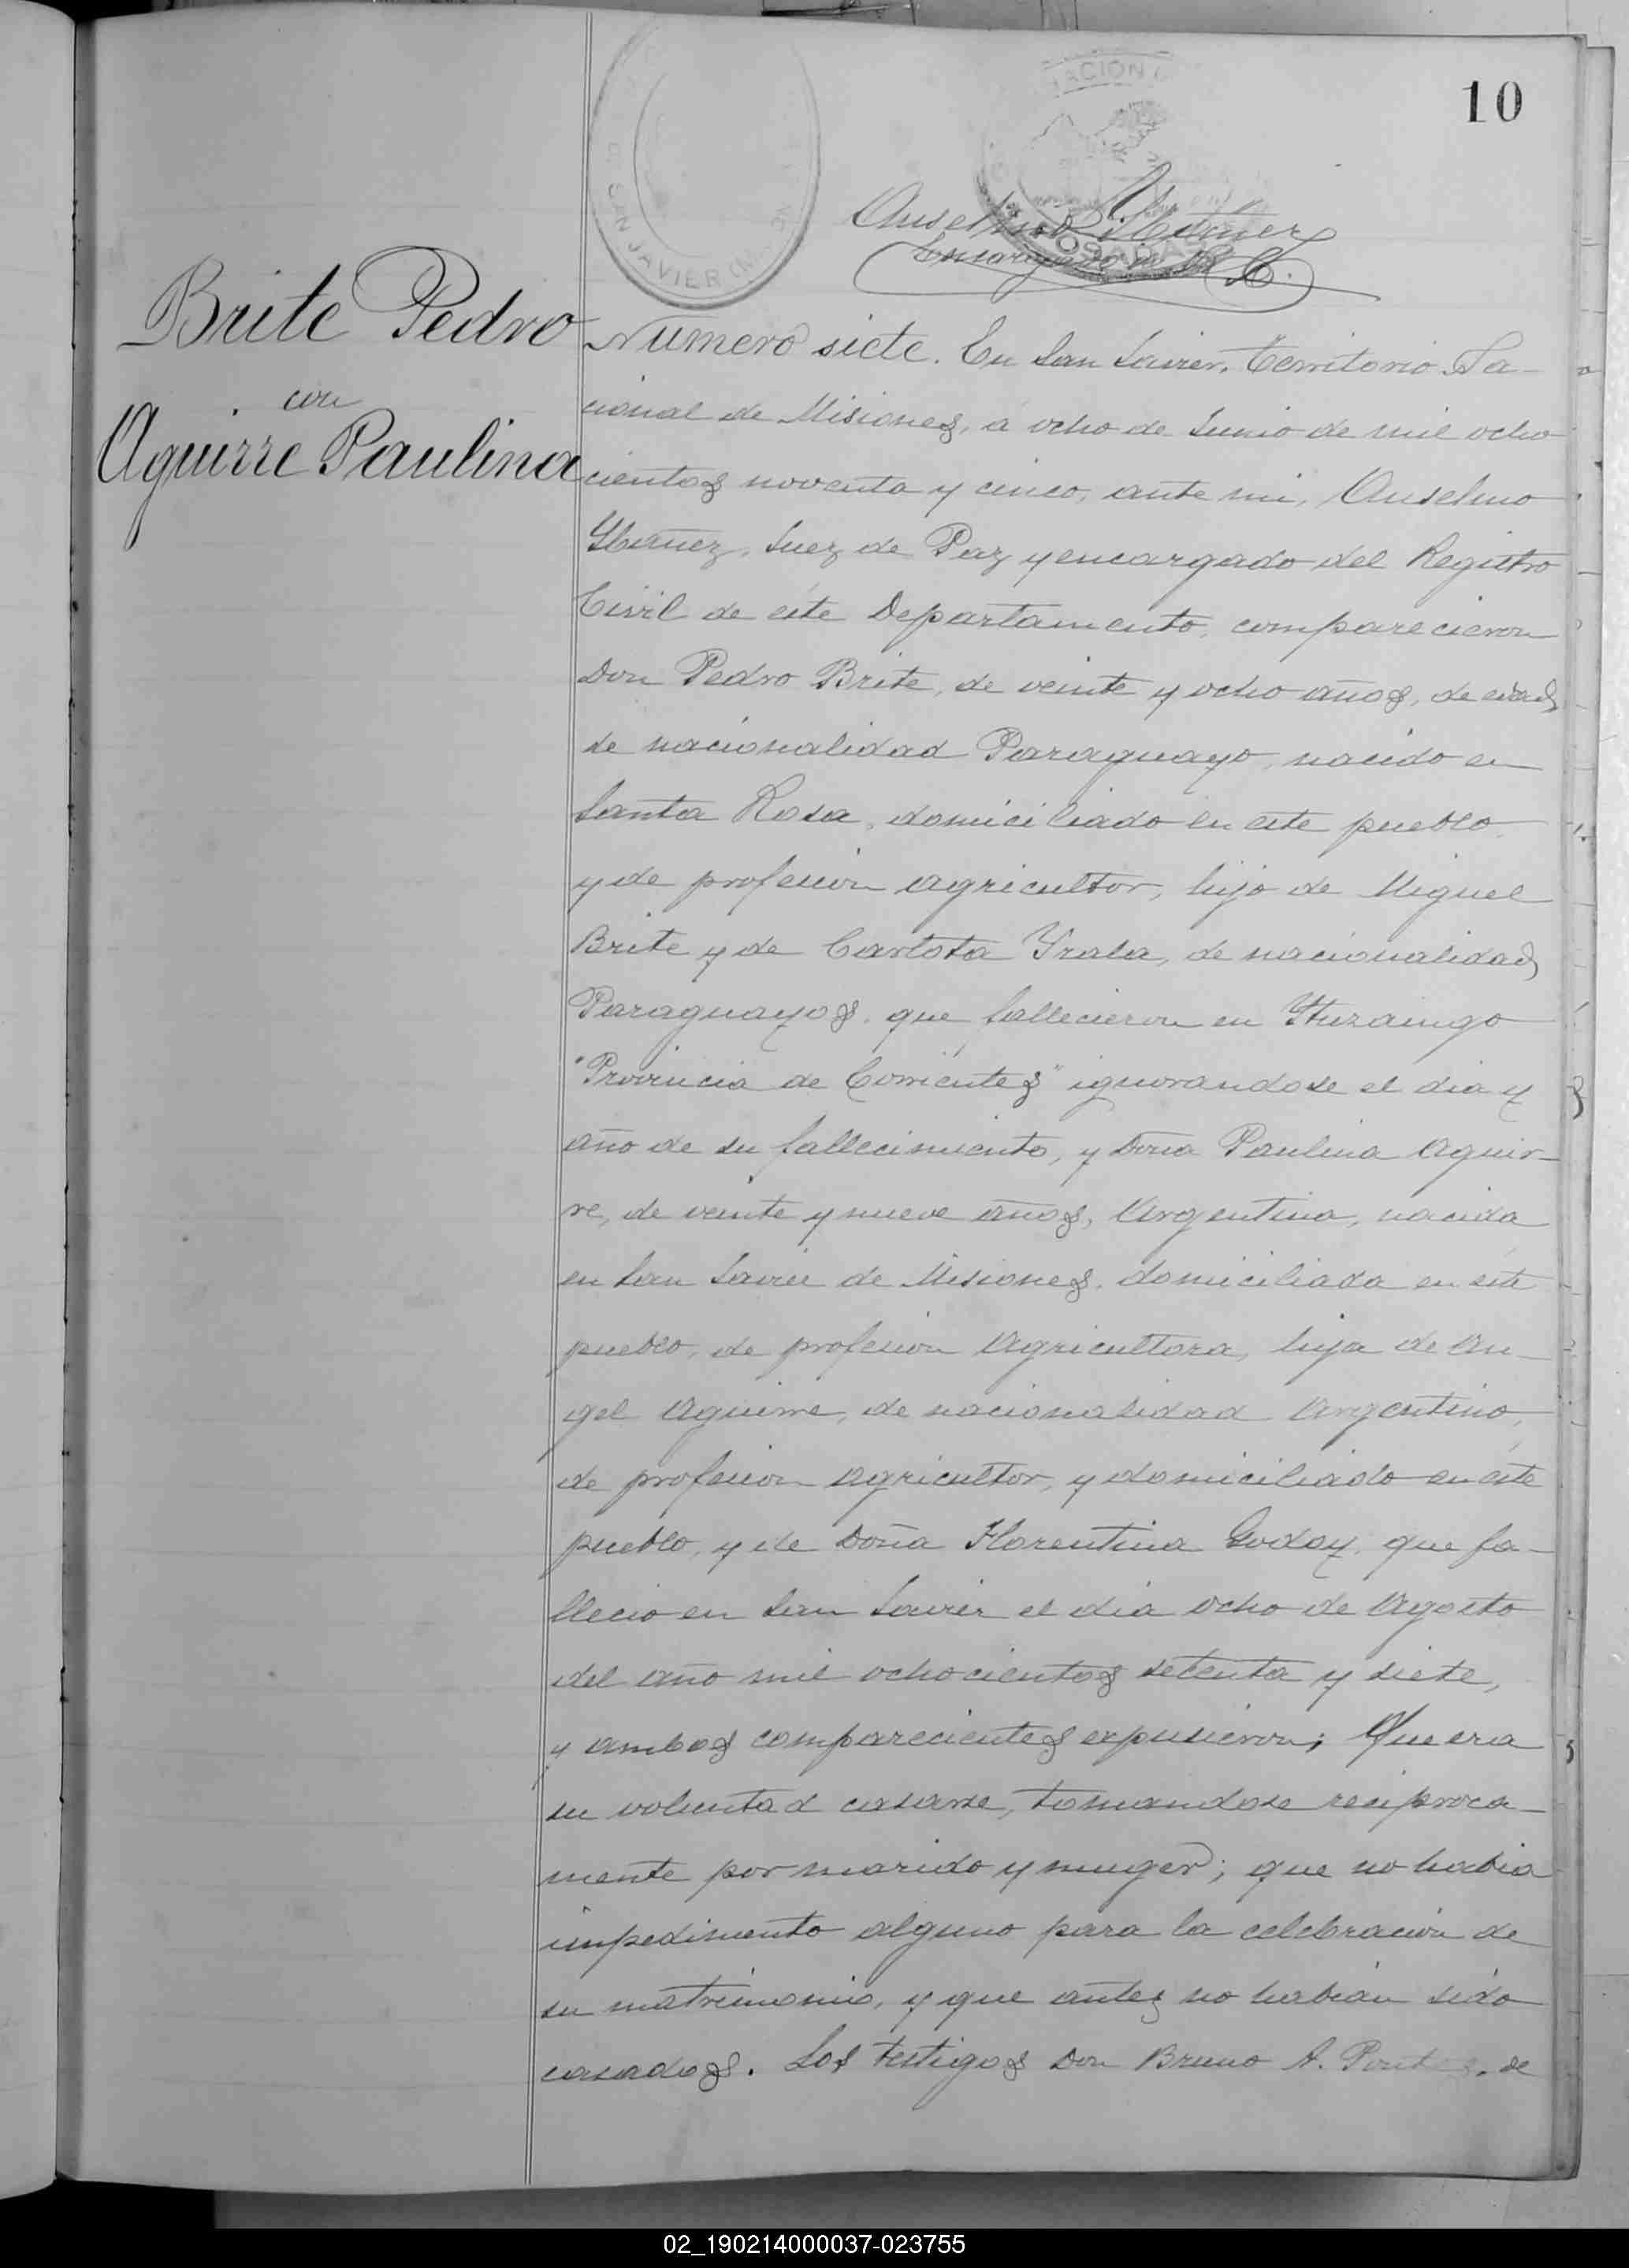 10
NACION
SAN JAVIER
POSADAS
Anselmo Ibañez
Encargado del R. C.
Brite Pedro
con
Aguirre Paulina
Numero siete. En San Javier, Territorio Na-
cional de Misiones, á ocho de Junio de mil ocho
cientos noventa y cinco, ante mi, Anselmo
Ybañez, Juez de Paz y encargado del Registro
Civil de éste Departamento, comparecieron
Don Pedro Brite, de veinte y ocho años, de edad,
de nacionalidad Paraguayo, nacido en
Santa Rosa, domiciliado en este pueblo
y de profesion agricultor, hijo de Miguel
Brite y de Carlota Yrala, de nacionalidad
Paraguayos, que fallecieron en Ytuzaingo
"Provincia de Corrientes" ignorandose el dia y
año de su fallecimiento, y Doña Paulina Aguir-
re, de veinte y nueve años, Argentina, nacida
en San Javier de Misiones, domiciliada en este
pueblo, de profesion Agricultora, hija de An-
gel Aguirre, de nacionalidad Argentino,
de profesion agricultor, y domiciliado en este
pueblo, y de Doña Florentina Godoy, que fa-
lleció en San Javier el dia ocho de Agosto
del año mil ochocientos setenta y siete,
y ambos comparecientes expusieron; Que era
su voluntad casarse, tomandose reciproca-
mente por marido y muger; que no habia
impedimento alguno para la celebración de
su matrimonio, y que antes no habian sido
casados. Los testigos Don Bruno A. de
02_190214000037-023755